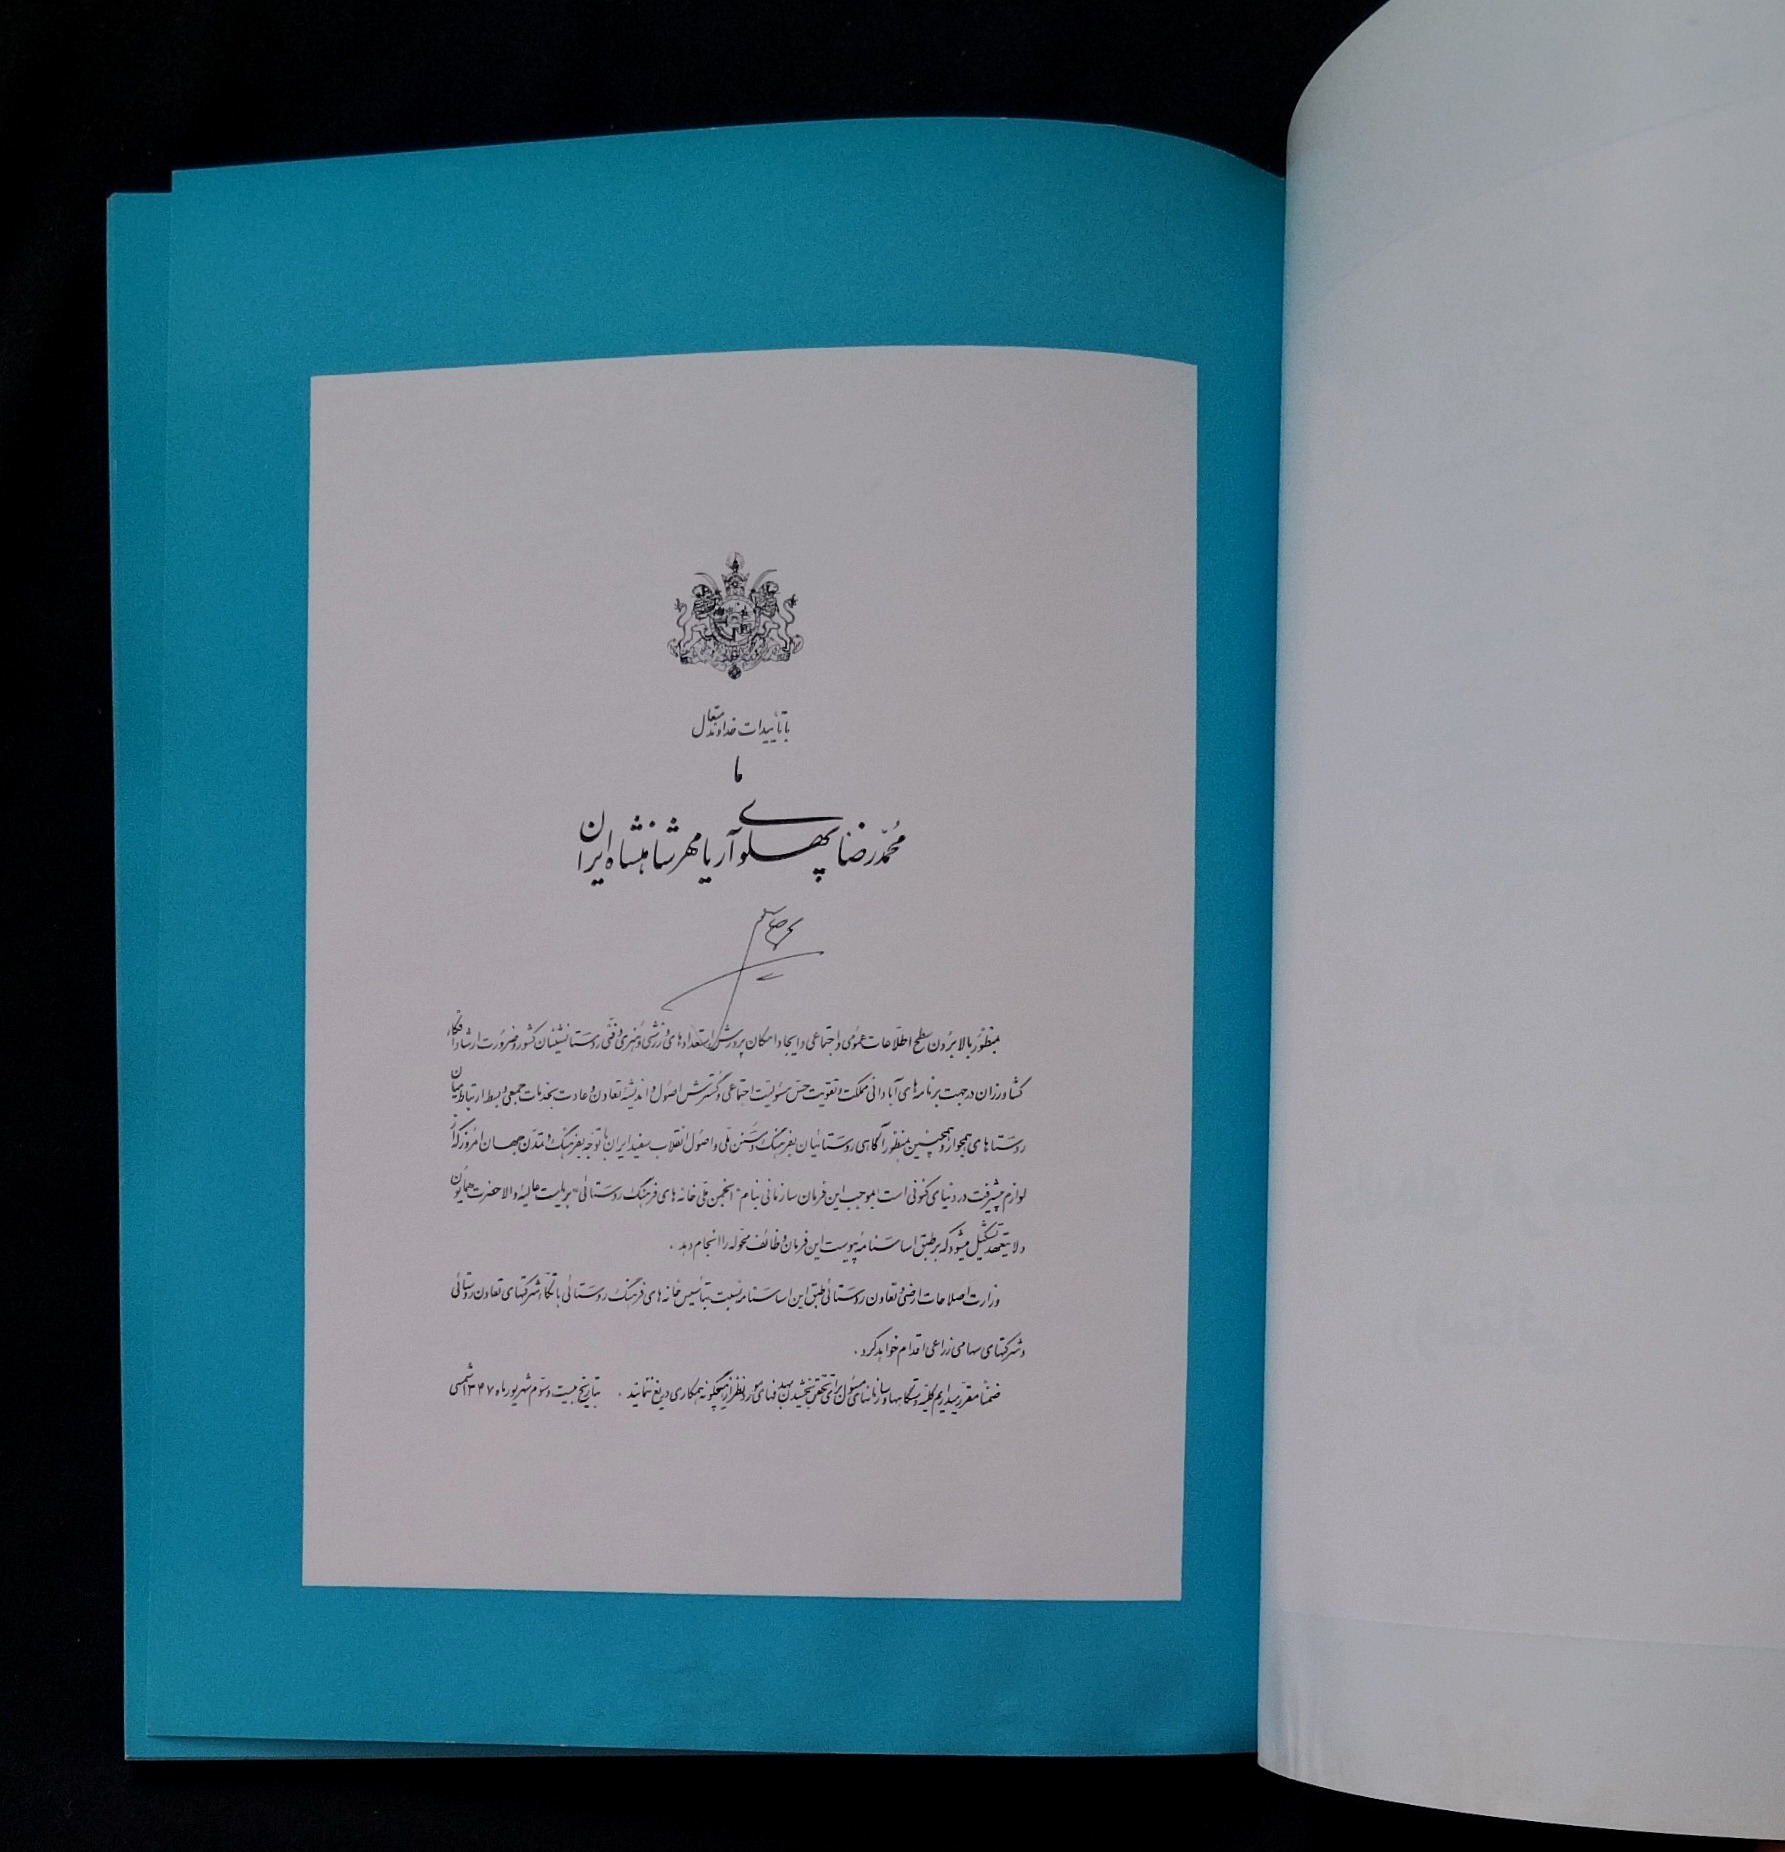 با تأییدات خداوند متعال
ما
محمّدرضا پهلوی آریامهر شاهنشاه ایران
بمنظور بالا بردن سطح اطلاعات عمومی و اجتماعی و ایجاد امکان پرورش استعدادهای ورزشی و هنری و فنّی روستانشینان کشور و ضرورت ارشاد افکار
کشاورزان در جهت برنامه‌های آبادانی مملکت و تقویت حس مسئولیت اجتماعی و گسترش اصول و اندیشهٔ تعاون و عادت بخدمات جمعی و بسط ارتباط میان
روستاهای همجوار و همچنین بمنظور آگاهی روستائیان بفرهنگ و سنن ملّی و اصول انقلاب سفید ایران با توجّه بفرهنگ و تمدّن جهان امروز که از
لوازم پیشرفت در دنیای کنونی است بموجب این فرمان سازمانی بنام «انجمن ملّی خانه‌های فرهنگ روستائی» بریاست عالیهٔ والاحضرت همایون
ولایتعهد تشکیل میشود که بر طبق اساسنامهٔ پیوست این فرمان وظائف محوّله را انجام دهد .
وزارت اصلاحات ارضی و تعاون روستائی طبق این اساسنامه نسبت بتأسیس خانه‌های فرهنگ روستائی با اتّکاء شرکتهای تعاون روستائی
و شرکتهای سهامی زراعی اقدام خواهد کرد .
ضمناً مقرر میداریم کلیّه دستگاهها و سازمانهای مسئول برای تحقّق بخشیدن بهدفهای مورد نظر از هیچگونه همکاری دریغ ننمایند . بتاریخ بیست و سوّم شهریور ماه ۱۳۴۷ شمسی